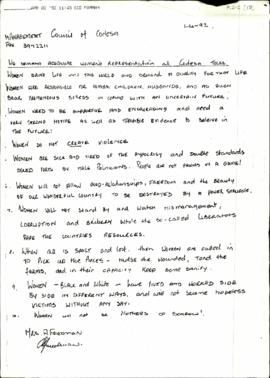 1-4-92
MANAGEMENT Council of Codesa
FAX 3972211
We demand adequate women's representation at Codesa Talks.
Women bring life into this world and demand a quality for that life
Women are responsible for homes, children, husbands, and as such
bear tremendous stress in living with an uncertain future.
Women need to be supportive and encouraging and need a
very strong motive as well as tangible evidence to believe in
the future!
Women do not create violence
Women are sick and tired of the hypocrisy and double standards
by Male Politicians. People are not pawns in a game!
Women will not allow our relationships, freedom and the beauty
of our wonderful country to be destroyed by a power struggle.
Women will not stand by and watch mismanagement,
corruption and bribery while the so-called liberators
rape the countries resources.
When all is spilt and lost. Then women are called in
to pick up the pieces - nurse the wounded, tend the
farms, and in their capacity keep some sanity.
9. Women - Black and White - have lived and worked side
by side in different ways, and will not become hopeless
victims without any say.
Women will not be mothers of sorrow!
Mrs. A. Feldman